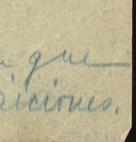 que
iciones.